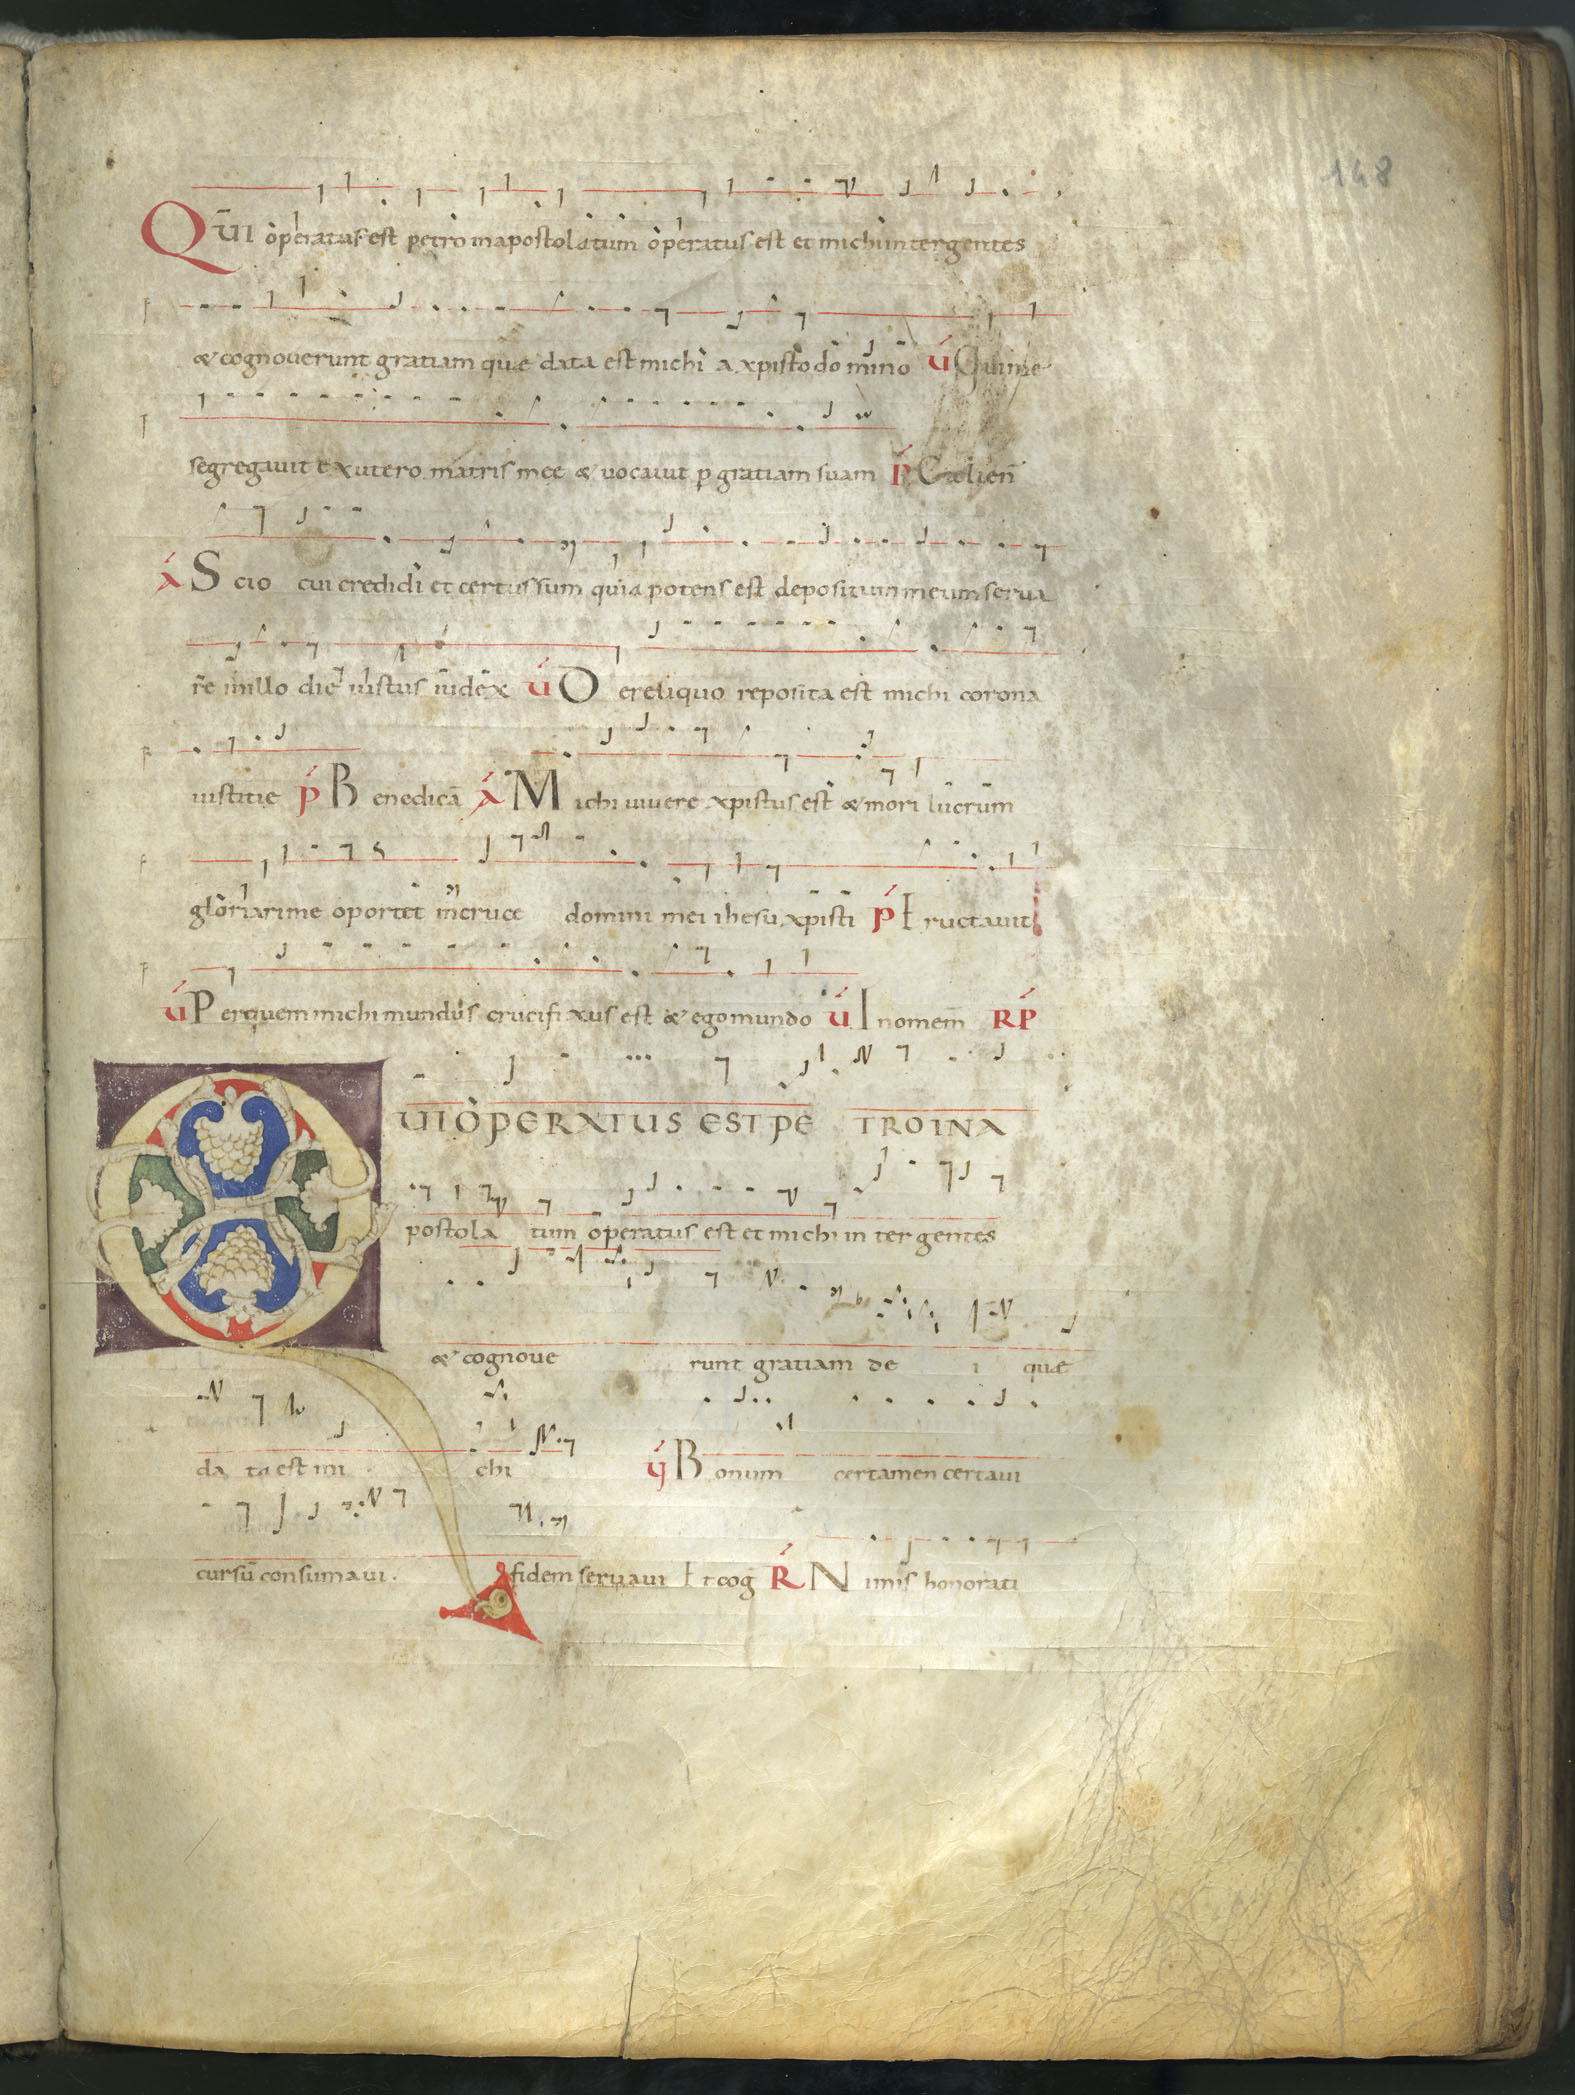 148
QUI operatus est petro inapostolatum operatus est et michi inter gentes
& cognoverunt gratiam que data est michi a xpisto domino V Qui me
segregavit exutero matris mee & vocavit p gratiam suam P Celi en̄
A Scio cui credidi et certus sum quia potens est depositum meum serva
re in illo die iustus iudex V De reliquo reposita est michi corona
iustitie P Benedicā A Michi vivere xpistus est & mori lucrum
gloriari me oportet in cruce domini mei ihesu xpisti P Eructavit
V Per quem michi mundus crucifixus est & ego mundo V In omem̄ RP
UI OPERATUS EST PE TRO IN A
postola tum operatus est et michi inter gentes
& cognove runt gratiam de i que
da ta est mi chi V Bonum certamen certavi
cursū consumavi . fidem servavi Et cog R Nimis honorati